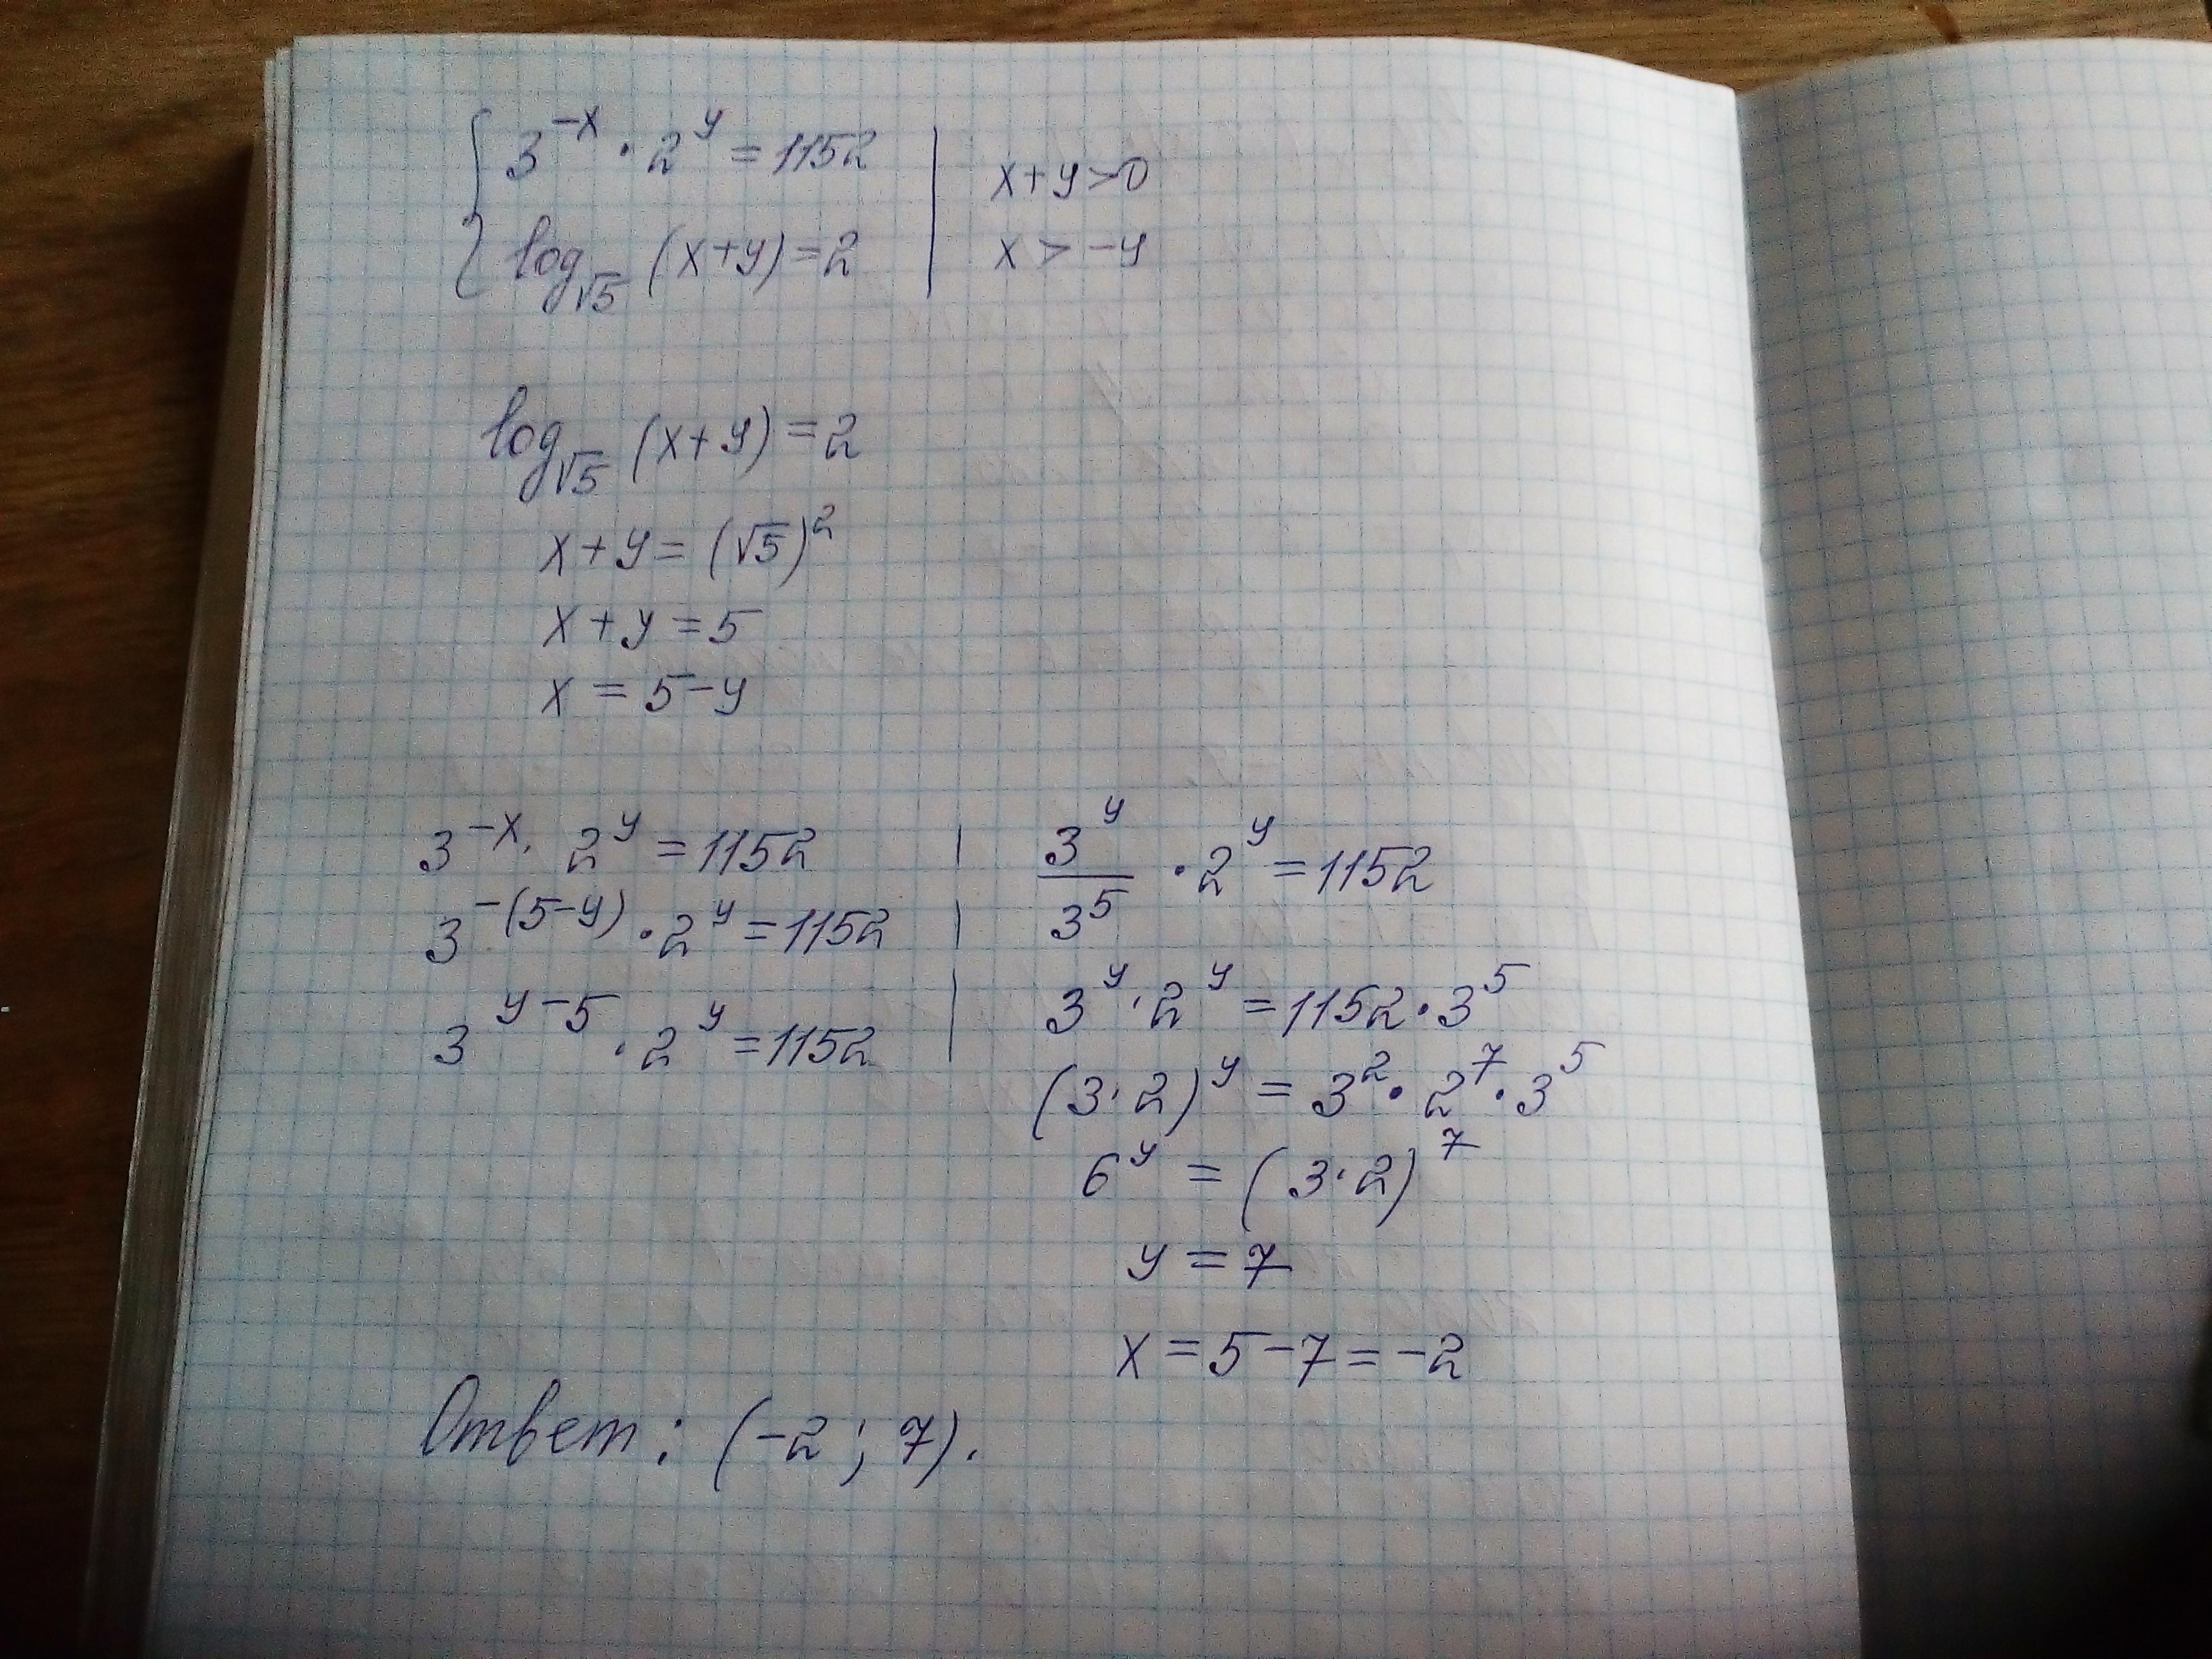 3^{-x} · 2^y = 1152
log_{√5} (x+y) = 2
x+y>0
x > -y
log_{√5} (x+y) = 2
x+y = (√5)^2
x+y = 5
x = 5-y
3^{-x} · 2^y = 1152
3^{-(5-y)} · 2^y = 1152
3^{y-5} · 2^y = 1152
3^y/3^5 · 2^y = 1152
3^y · 2^y = 1152 · 3^5
(3·2)^y = 3^2 · 2^7 · 3^5
6^y = (3·2)^7
y = 7
x = 5-7 = -2
Ответ: (-2; 7).